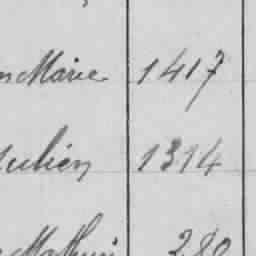 Marie 1417
Julien 1314
Mathurin 280